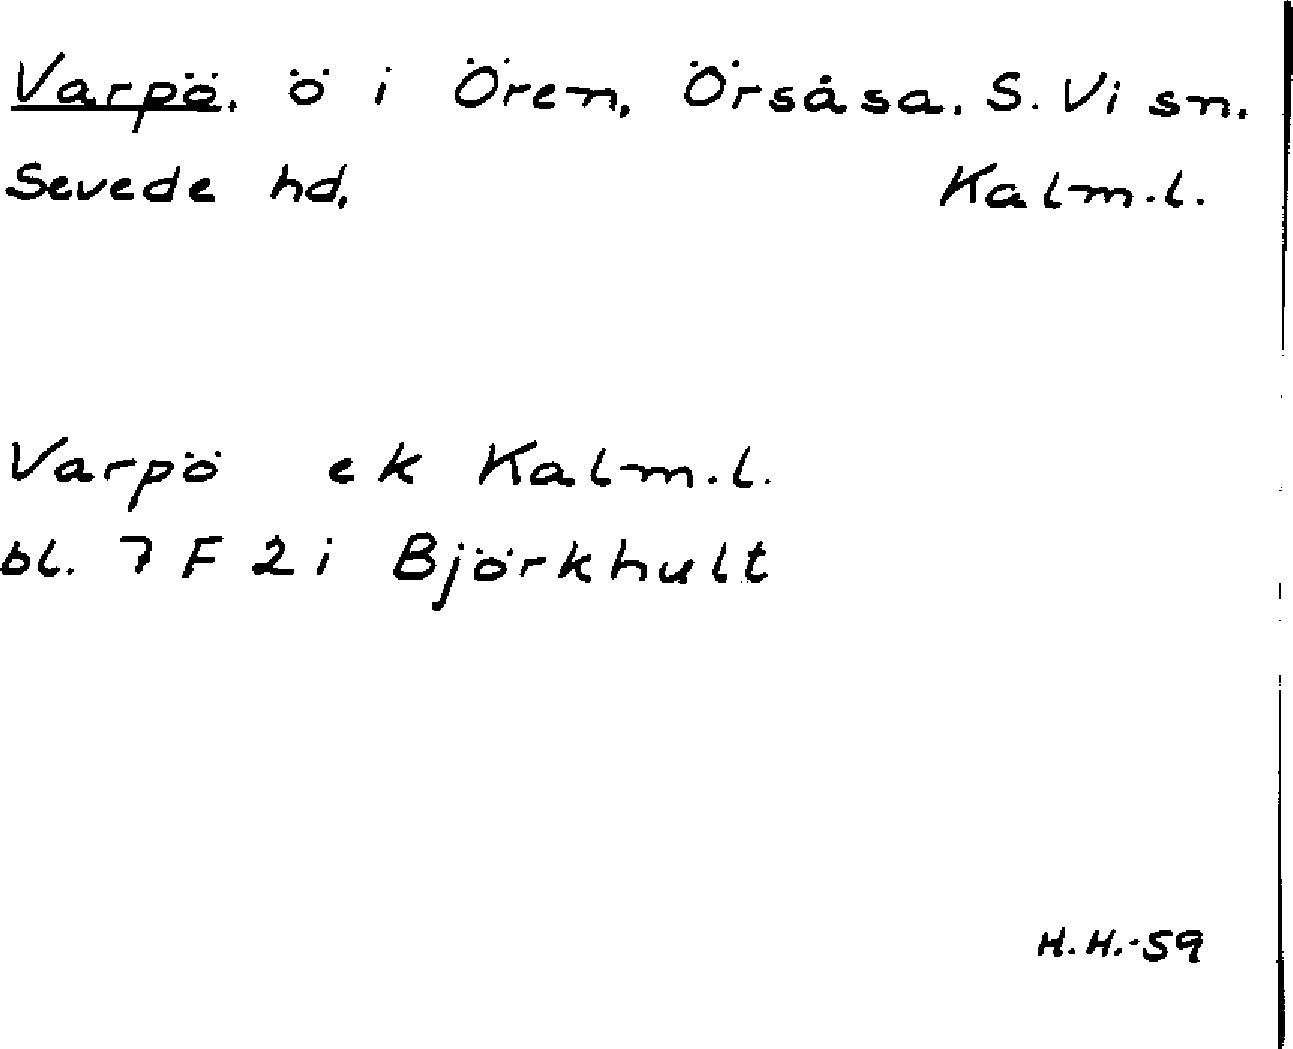 Varpö. ö i Ören, Örsåsa. S. Vi sn.
Sevede hd, Kalm.l.
Varpö ek Kalm.l.
bl. 7 F 2 i Björkhult
H.H.-59